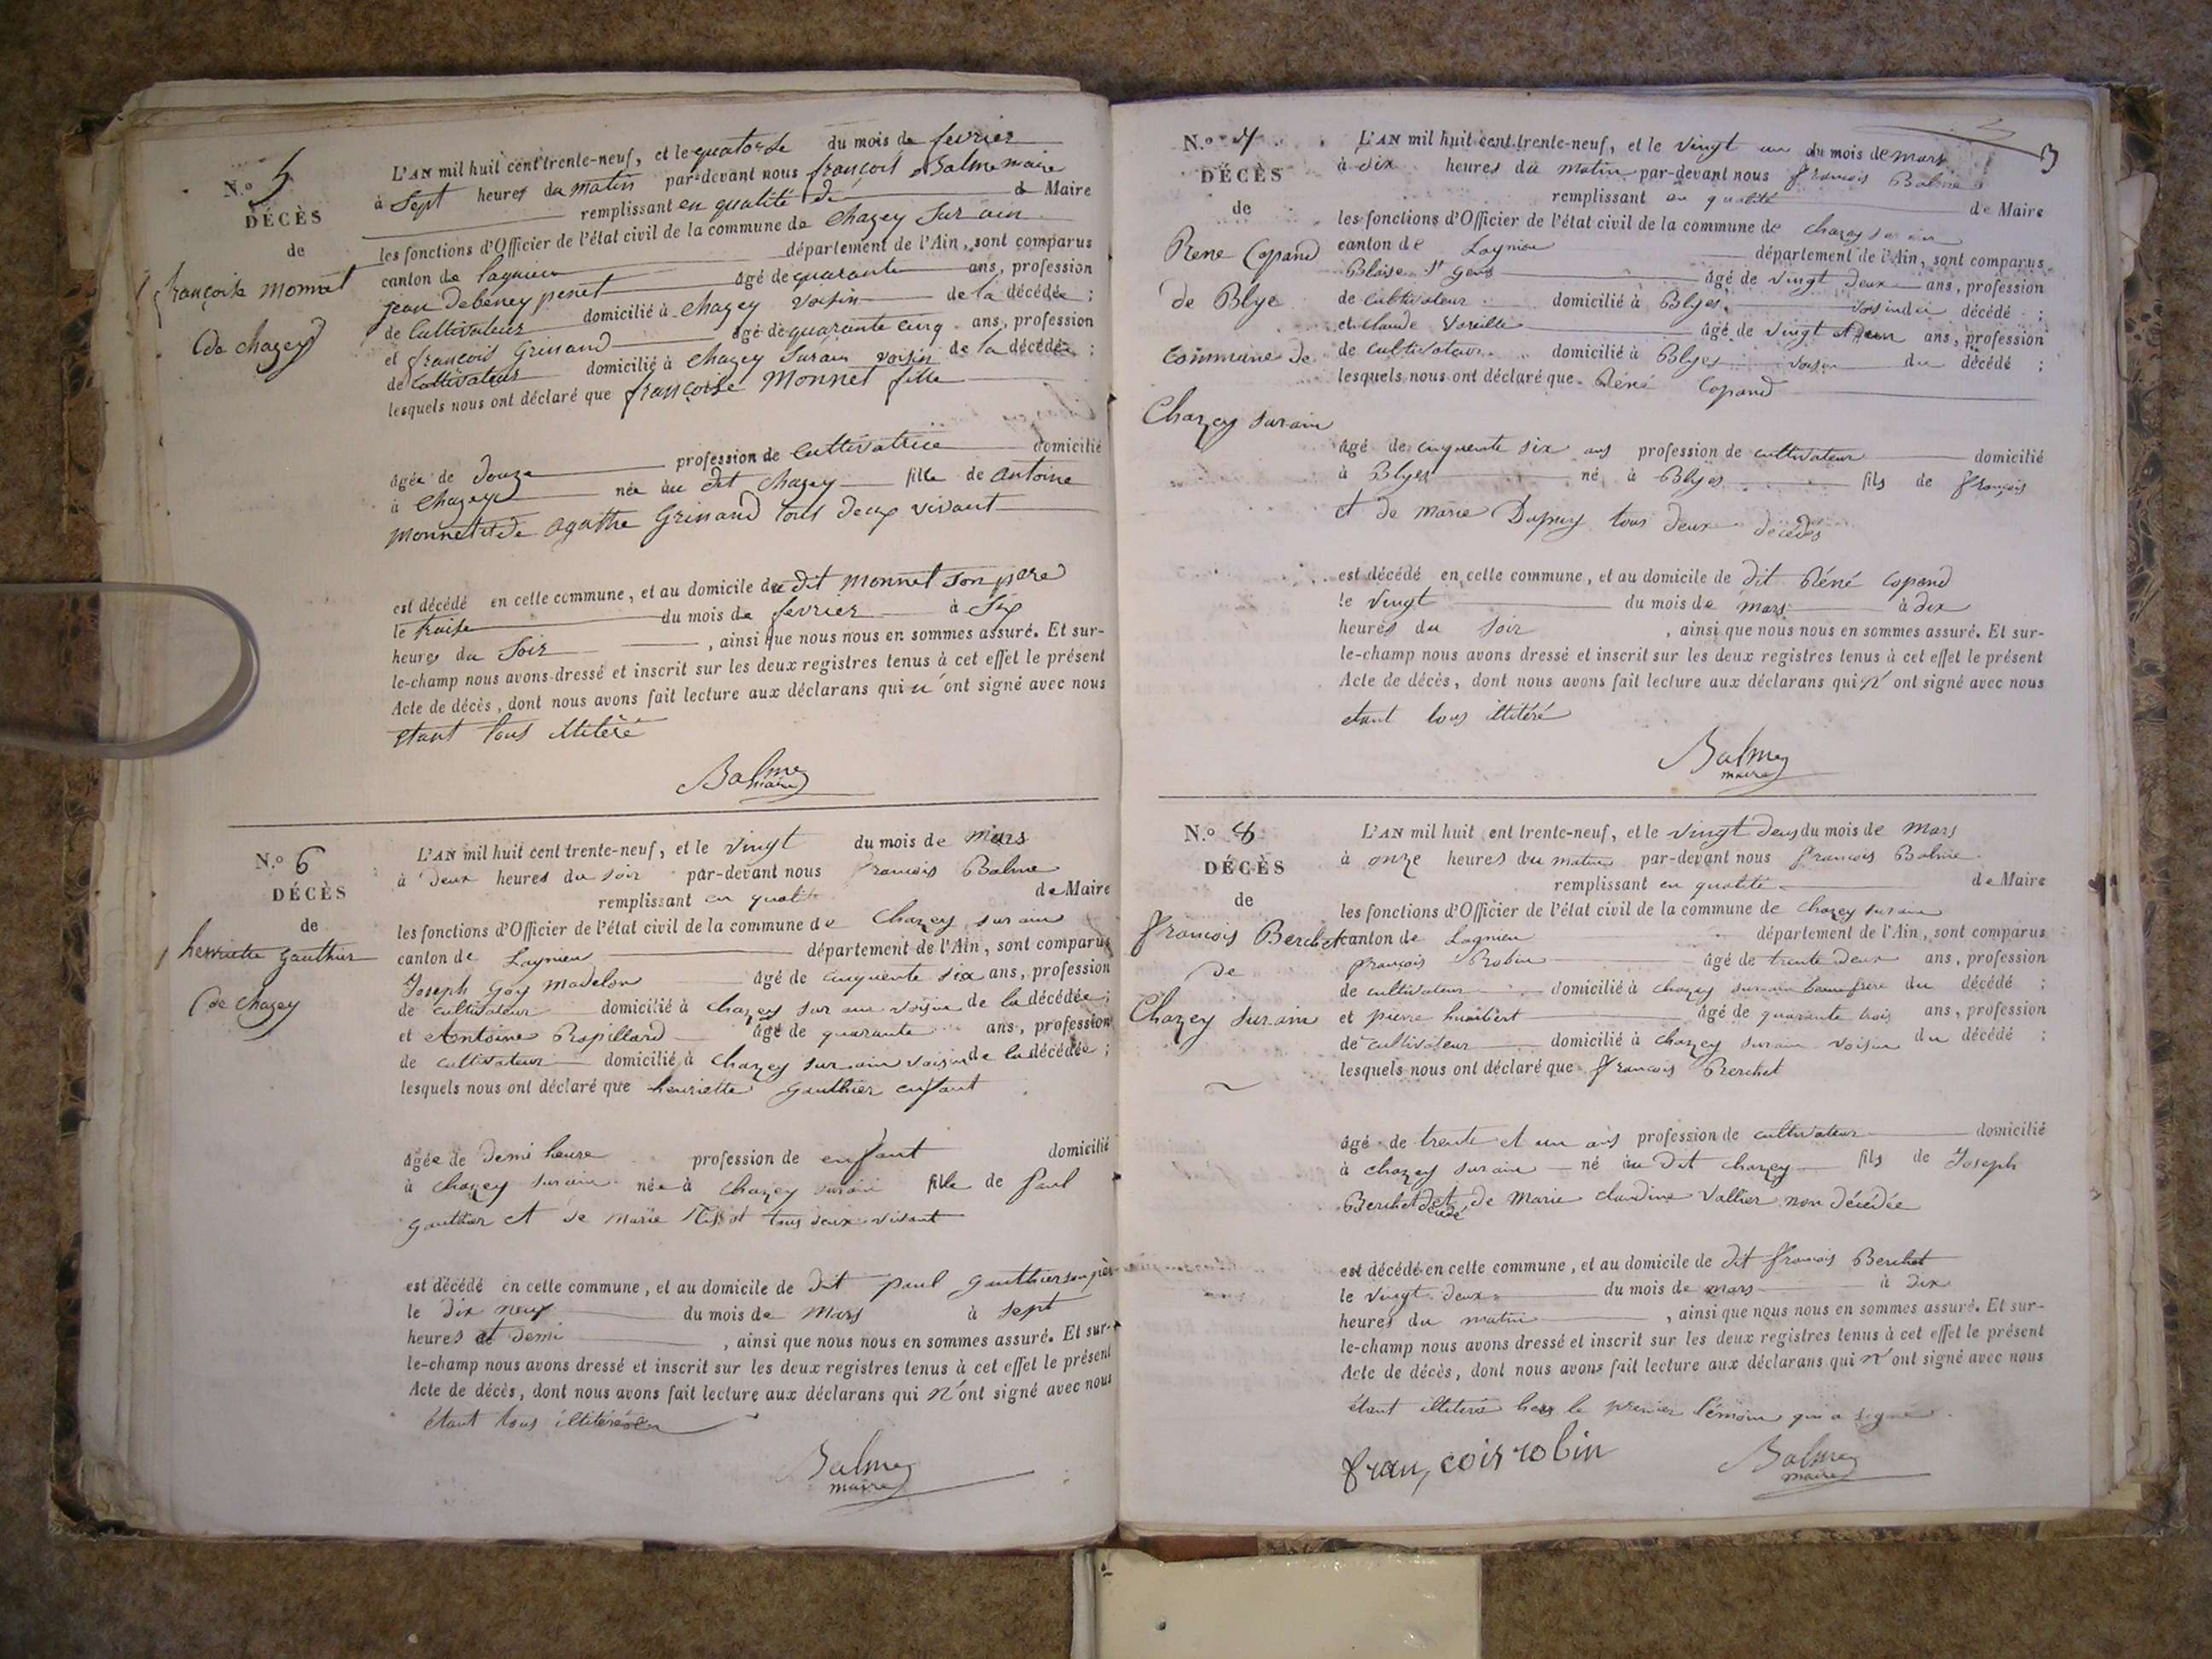 N.o 5
DÉCÈS
de
françoise monnet
de chazey
L'AN mil huit cent trente-neuf, et le quatorze du mois de fevrier
à Sept heures du matin par-devant nous françois Balme maire
remplissant en qualité de de Maire
les fonctions d'Officier de l'état civil de la commune de chazey Sur ain
canton de lagnieu département de l'Ain, sont comparus
jean debeney penet âgé de quarante ans, profession
de Cultivateur domicilié à chazey voisin de la décédée ;
et françois Grinand âgé de quarante cinq ans, profession
de Cultivateur domicilié à chazey Surain voisin de la décédée ;
lesquels nous ont déclaré que françoise Monnet fille
âgée de douze profession de Cultivatrice domicilié
à chazey née au dit chazey fille de antoine
Monnet et de agathe Grinand tous deux vivant
est décédé en cette commune, et au domicile du dit monnet son pere
le traise du mois de fevrier à Six
heures du Soir , ainsi que nous nous en sommes assuré. Et sur-
le-champ nous avons dressé et inscrit sur les deux registres tenus à cet effet le présent
Acte de décès, dont nous avons fait lecture aux déclarans qui n'ont signé avec nous
etant tous illitéré
Balme
maire
N.o 6
DÉCÈS
de
henriette gauthier
de chazey
L'AN mil huit cent trente-neuf, et le vingt du mois de mars
à deux heures du soir par-devant nous francois Balme
remplissant en qualité de Maire
les fonctions d'Officier de l'état civil de la commune de Chazey sur ain
canton de Lagnieu département de l'Ain, sont comparus
Joseph Goy Madelon âgé de cinquente six ans, profession
de cultivateur domicilié à chazey sur ain voisin de la décédée ;
et Antoine Papillard âgé de quarante ans, profession
de cultivateur domicilié à chazey sur ain voisin de la décédée ;
lesquels nous ont déclaré que henriette gauthier enfant
âgée de demi heure profession de enfant domicilié
à chazey surain née à chazey surain fille de Paul
gauthier et de marie tous deux vivant
est décédé en cette commune, et au domicile de dit paul gauthier son père
le dix neuf du mois de Mars à sept
heures et demi , ainsi que nous nous en sommes assuré. Et sur-
le-champ nous avons dressé et inscrit sur les deux registres tenus à cet effet le présent
Acte de décès, dont nous avons fait lecture aux déclarans qui n'ont signé avec nous
étant tous illitéré
Balme
maire
3
N.o 7
DÉCÈS
de
Rene Copand
de Blye
commune de
Chazey surain
L'AN mil huit cent trente-neuf, et le vingt un du mois de mars
à dix heures du matin par-devant nous francois Balme
remplissant en qualité de Maire
les fonctions d'Officier de l'état civil de la commune de chazey sur ain
canton de Lagnieu département de l'Ain, sont comparus
Blaise St Gens âgé de vingt deux ans, profession
de cultivateur domicilié à Blyes voisin du décédé ;
et claude Vareille âgé de vingt et deux ans, profession
de cultivateur domicilié à Blyes voisin du décédé ;
lesquels nous ont déclaré que Réné Copand
âgé de cinquente six ans profession de cultivateur domicilié
à Blyes né à Blyes fils de françois
et de marie Dupuy tous deux décédés
est décédé en cette commune, et au domicile de dit Réné Copand
le vingt du mois de mars à dix
heures du soir , ainsi que nous nous en sommes assuré. Et sur-
le-champ nous avons dressé et inscrit sur les deux registres tenus à cet effet le présent
Acte de décès, dont nous avons fait lecture aux déclarans qui n'ont signé avec nous
etant tous illitéré
Balme
maire
N.o 8
DÉCÈS
de
francois Berchet
de
Chazey surain
L'AN mil huit ent trente-neuf, et le vingt deux du mois de Mars
à onze heures du matin par-devant nous francois Balme
remplissant en qualité de Maire
les fonctions d'Officier de l'état civil de la commune de chazey surain
canton de Lagnieu département de l'Ain, sont comparus
françois Robin âgé de trente deux ans, profession
de cultivateur domicilié à chazey sur ain beau frere du décédé ;
et pierre humbert âgé de quarante trois ans, profession
de cultivateur domicilié à chazey surain voisin du décédé ;
lesquels nous ont déclaré que francois Berchet
âgé de trente et un ans profession de cultivateur domicilié
à chazey surain né au dit chazey fils de Joseph
Berchet décédé et de Marie claudine Vallier non décédée
est décédé en cette commune, et au domicile de dit francois Berchet
le vingt deux du mois de mars à dix
heures du matin , ainsi que nous nous en sommes assuré. Et sur-
le-champ nous avons dressé et inscrit sur les deux registres tenus à cet effet le présent
Acte de décès, dont nous avons fait lecture aux déclarans qui n'ont signé avec nous
étant illiteré hors le premier témoin qui a signé
fran,cois robin
Balme
maire